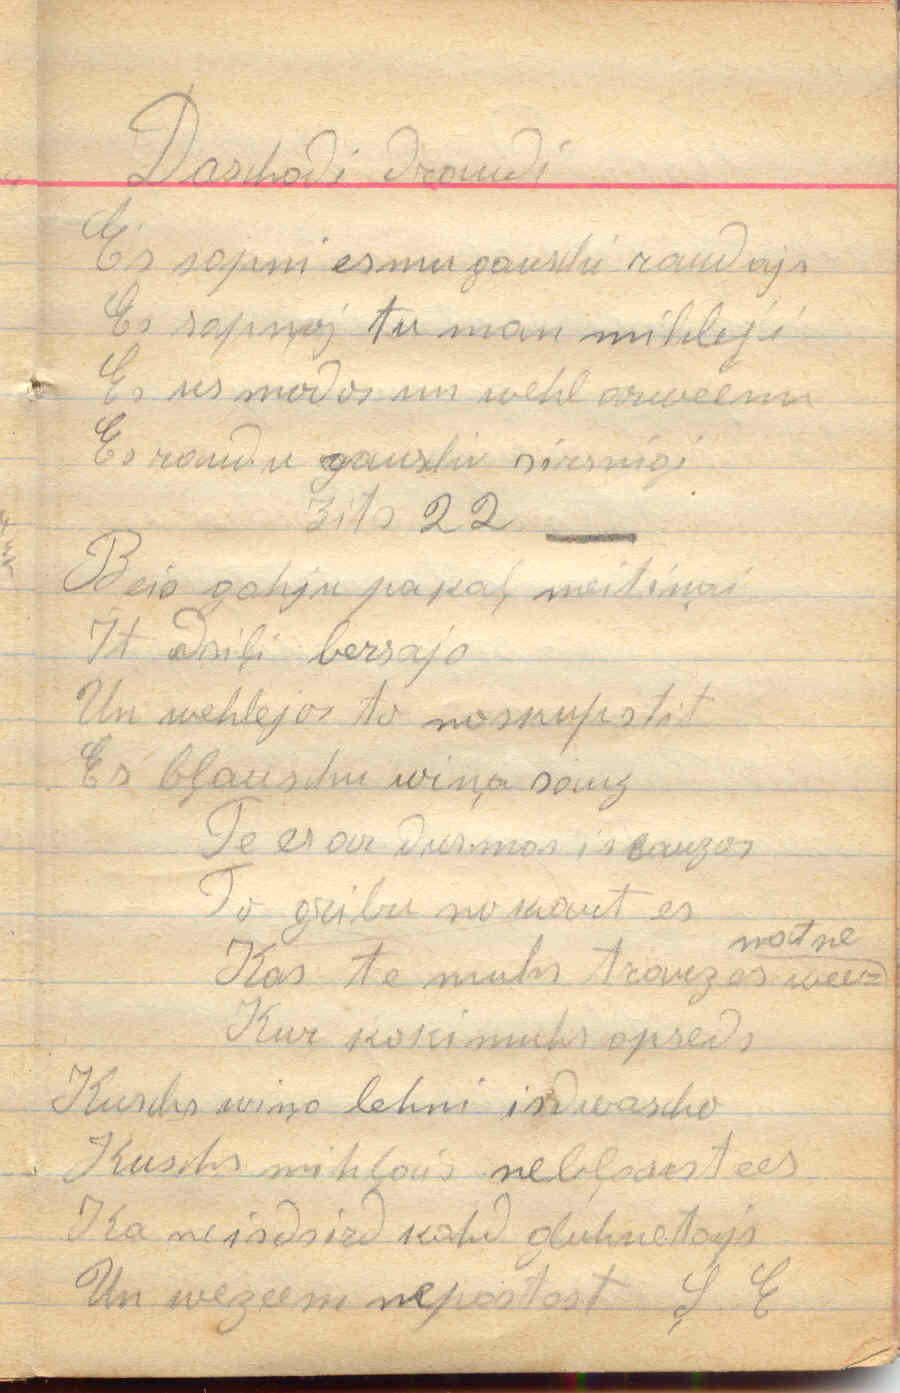 Daschadi draudi
Es sapni esmu gauschi raudajs
Es sapņoj tu man mihleji
Es us modos un wehl arweenu
Es raudu gauschi sirsnigi
Zits 22
Beis gahju pakaļ meitiņai
It dsiļi bersajo
Un wehlejos to noskupstit
Es bļauschu wiņa sauz
Te es ar dusmas issauzos
To gribu nokaut es
Kas te muhs trauzes
nat ne weens
Kur koki muhs apseds
Kuschs wiņo lehni isdwascho
Kuschs mihļais nebļaustees
Ka neisdsird kahd gluhnetajs
Un wezeem nepastast Ļ E